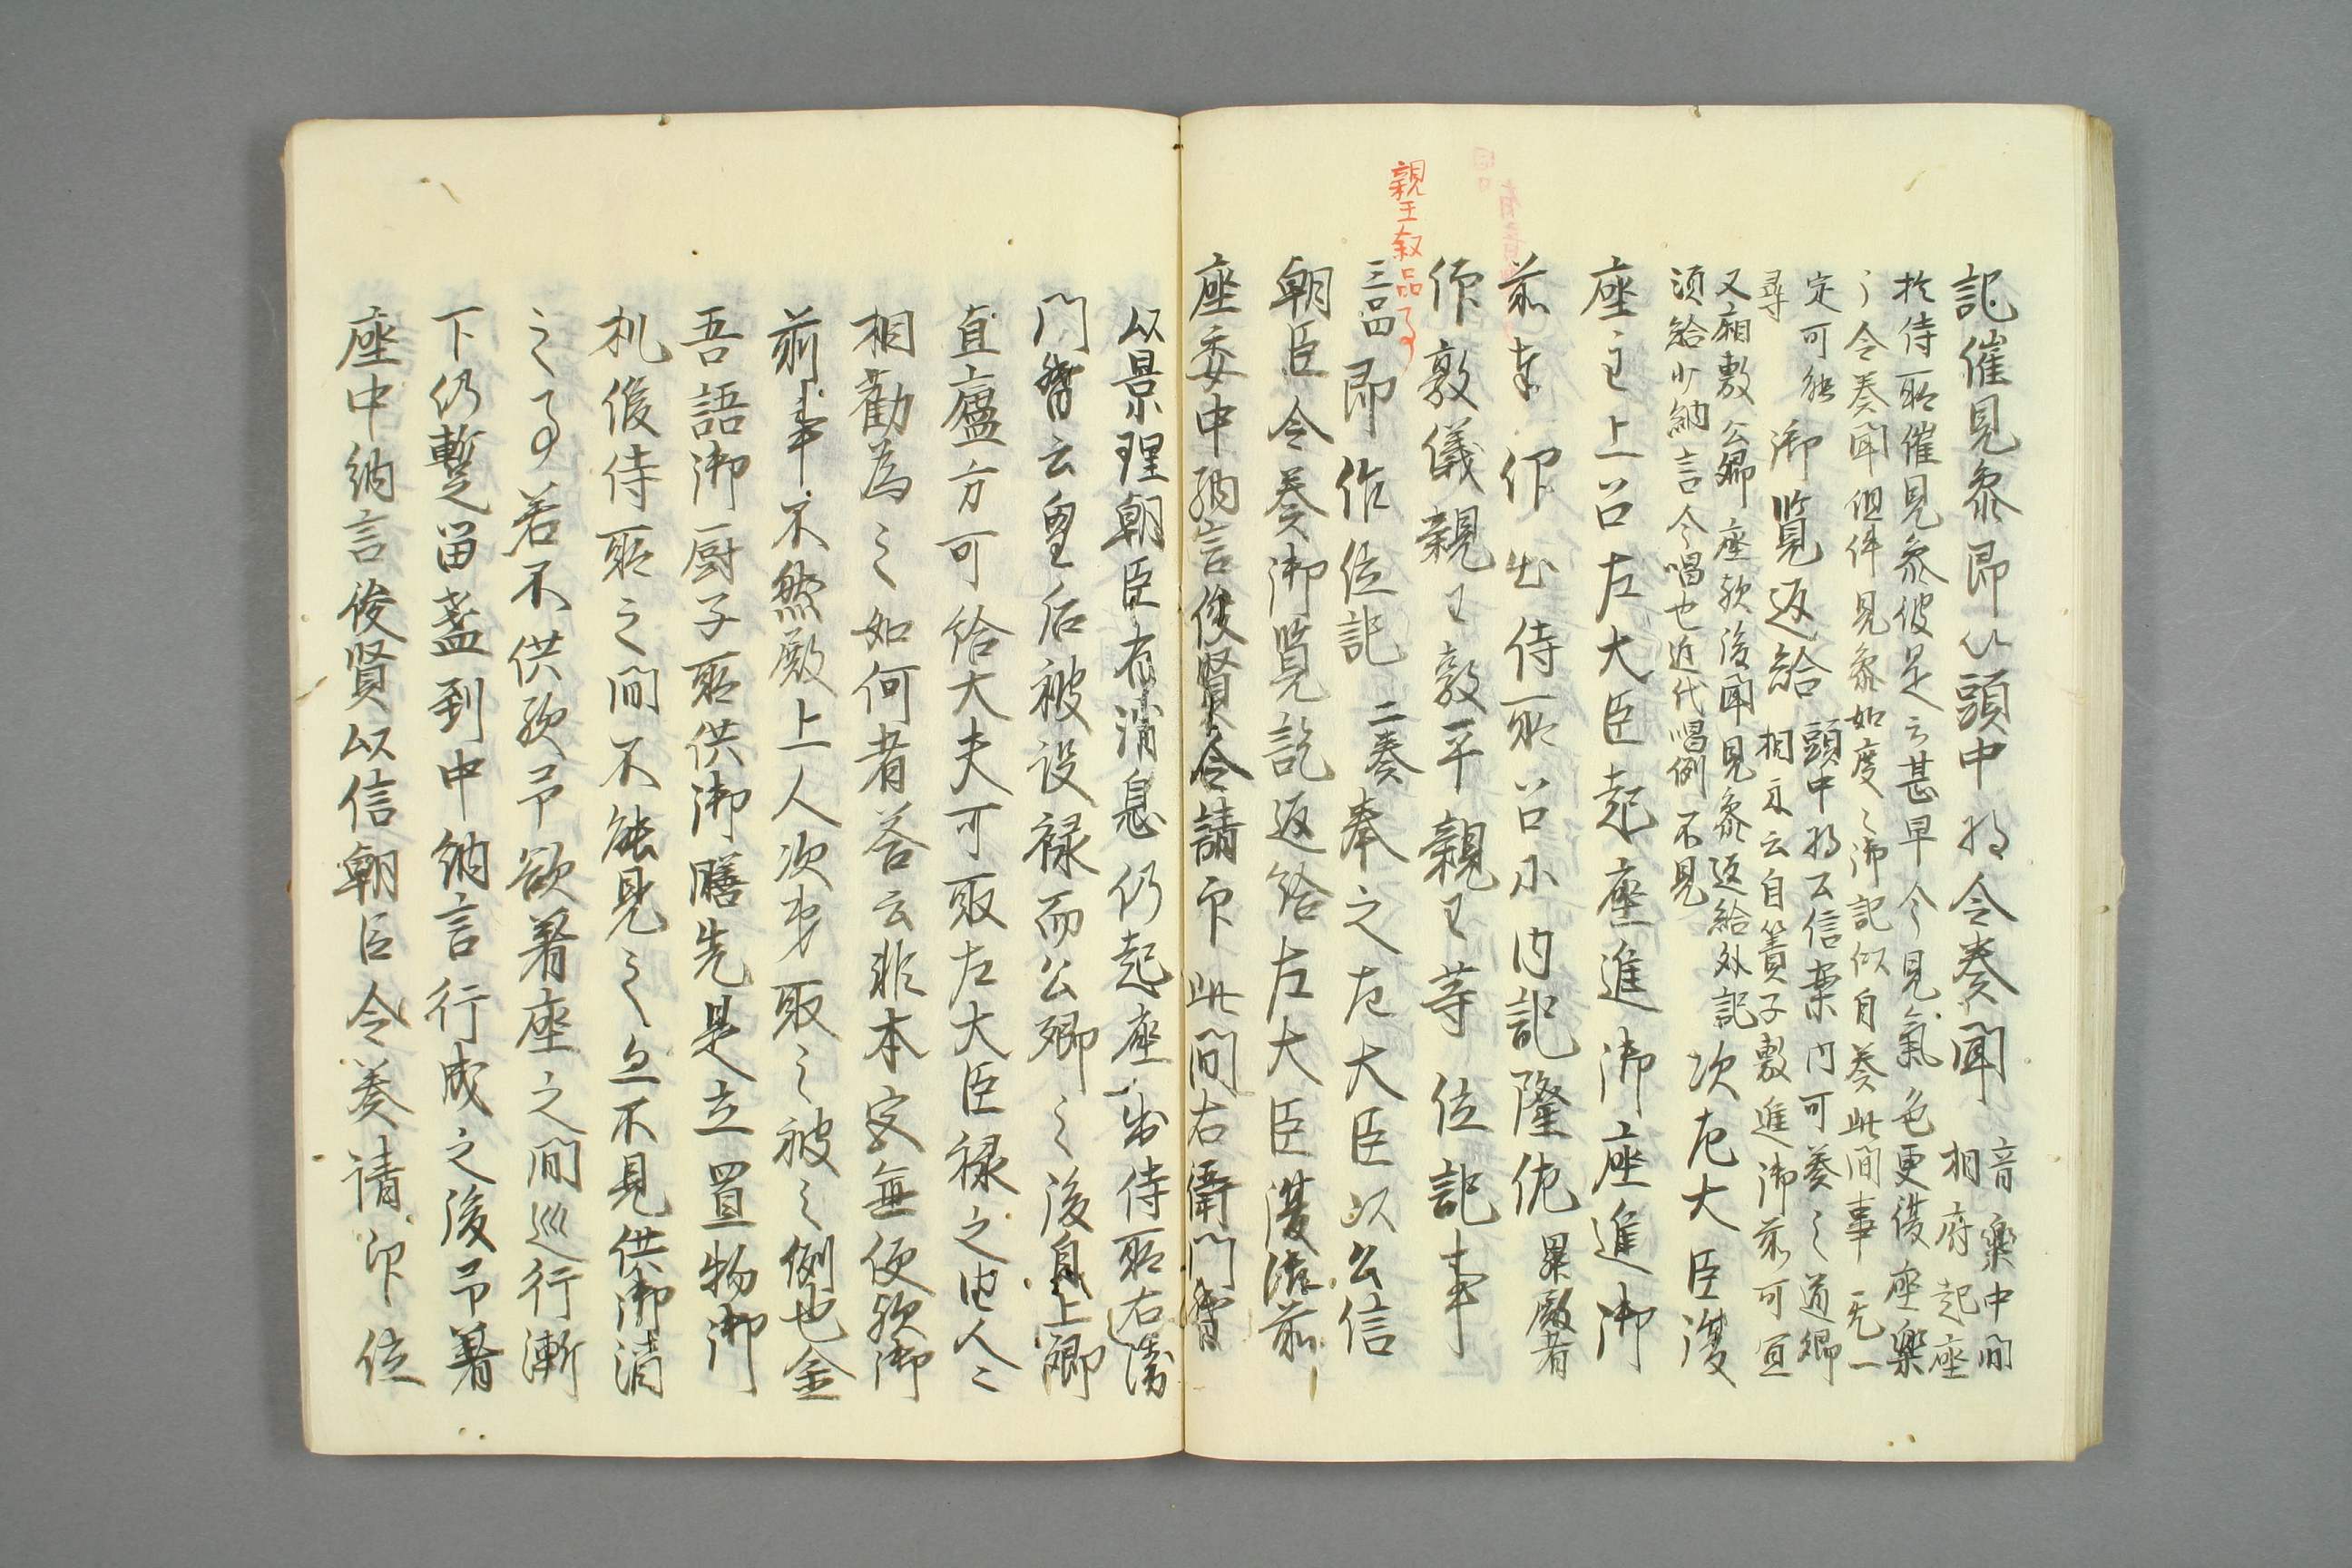 記催見参即以頭中将令奏聞 音楽中間
相府起座
於侍所催見参彼是云甚早今見気色更復座楽
々令奏聞但件見参如度々御記似自奏此間事无一
定可然 御覧返給 頭中将公信稟内可奏之道卿
尋 相示云自簀子敷進御前可宜
又廂敷公卿座歟後聞見参返給外記 次左大臣復
須給少納言令唱也近代唱例不見
座主上召左大臣起座進御座進御
前奉仰出侍所召小内記隆佐 累殿者
作敦儀親王敦平親王等位記事
親王叙品事
三品 即作位記 二奏 奉之左大臣以公信
朝臣令奏御覧訖返給左大臣復御前
座委中納言俊賢令請印此間右衛門督
以景理朝臣有消息仍起座出侍所右衛
門督云皇后被設禄而公卿之後自上卿
直廬方可給大夫可取左大臣禄之由人々
相勧為之如何者答云非本家無便歟御
前事不然殿上人次第取之被之例也金
吾語御厨子所供御膳先是立置物御
机候侍所之間不能見之亦不見供御清
之事若不供歟予欲着座之間巡行漸
下仍暫留盞到中納言行成之後予着
座中納言俊賢以信朝臣令奏請印位